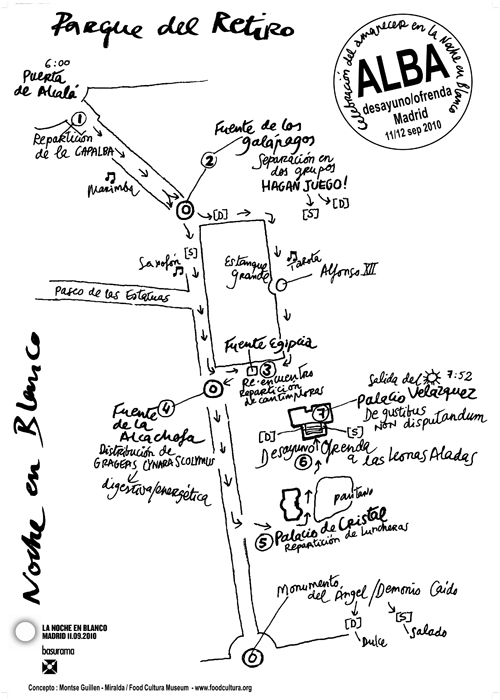 Parque del Retiro
Celebración del amanecer en la Noche en Blanco
ALBA
desayuno/ofrenda
Madrid
11/12 sep 2010
6:00
Puerta
de Alcalá
1
Repartición
de la CAPALBA
Marimba
Fuente de los
galápagos
2
Separación en
dos grupos
HAGAN JUEGO!
[S]
[D]
[D]
[S]
Saxofón
Estanque
grande
Tarota
Alfonso XII
Paseo de las Estatuas
Fuente Egipcia
3
Re-encuentro
Repartición
de cantimploras
4
Fuente
de la
Alcachofa
Distribución de
GRAGEAS CYNARA SCOLYMUS
digestiva/energética
Salida del 7:52
Palacio Velázquez
De gustibus
non disputandum
7
[D]
[S]
Desayuno Ofrenda
6
a Las Leonas Aladas
pantano
5
Palacio de Cristal
Repartición de luncheras
Monumento
del Ángel/Demonio Caído
[D]
[S]
Dulce
Salado
6
Noche en Blanco
LA NOCHE EN BLANCO
MADRID 11.09.2010
basurama
Concepto : Montse Guillen - Miralda / Food Cultura Museum - www.foodcultura.org